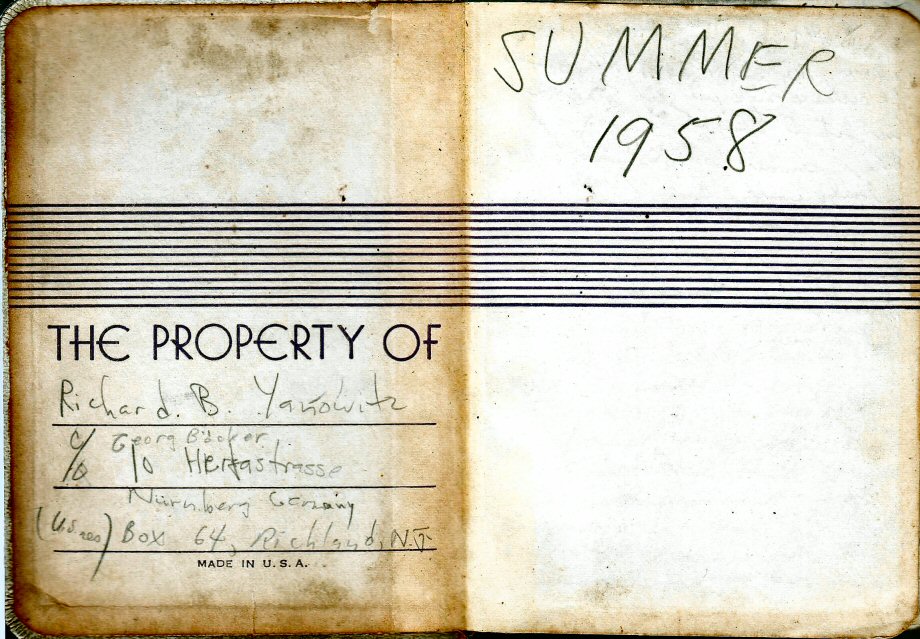 THE PROPERTY OF
Richard. B. Yanowitz
c/o Georg Bäcker
10 Hertastrasse
Nürnberg Germany
(U.S. res) Box 64, Richland, N.J.
MADE IN U.S.A.
SUMMER
1958